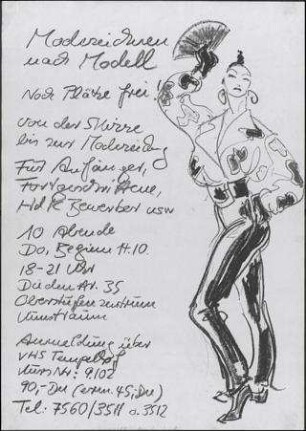 Modezeichnen
nach Modell
Noch Plätze frei!
von der Skizze
bis zur Modezeichng
Für Anfänger,
Fortgeschrittene,
HdK Bewerber usw
10 Abende
Do, Beginn 11.10.
18-21 Uhr
Str. 35
Oberstufenzentrum
Kunstraum
Anmeldung über
VHS Tempelhof
Kurs Nr: 9.102
90,- DM (erm. 45,- DM)
Tel: 7560/3511 o. 3512